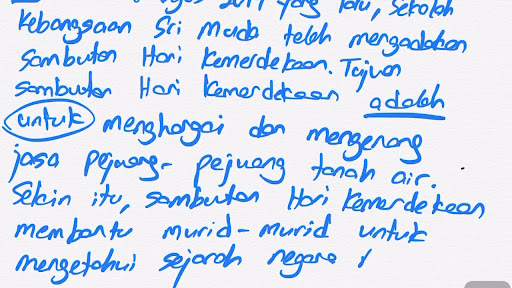 yang lalu, Sekolah
Kebangsaan Sri Muda telah mengadakan
Sambutan Hari Kemerdekaan. Tujuan
sambutan Hari Kemerdekaan adalah
untuk menghargai dan mengenang
jasa pejuang-pejuang tanah air.
Selain itu, sambutan Hari Kemerdekaan
membantu murid-murid untuk
mengetahui sejarah negara